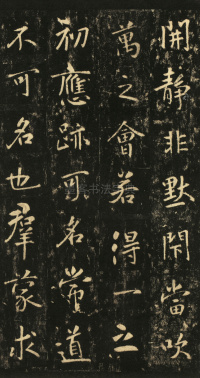 開靜非默閇當吹
萬之會若得一之
初應跡可名常道
不可名也羣蒙求